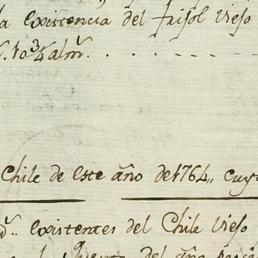 la existencia del frisol viejo
10 3/4 alm.s
Chile de este año de 1764,, cuy
existentes del Chile viejo
del año